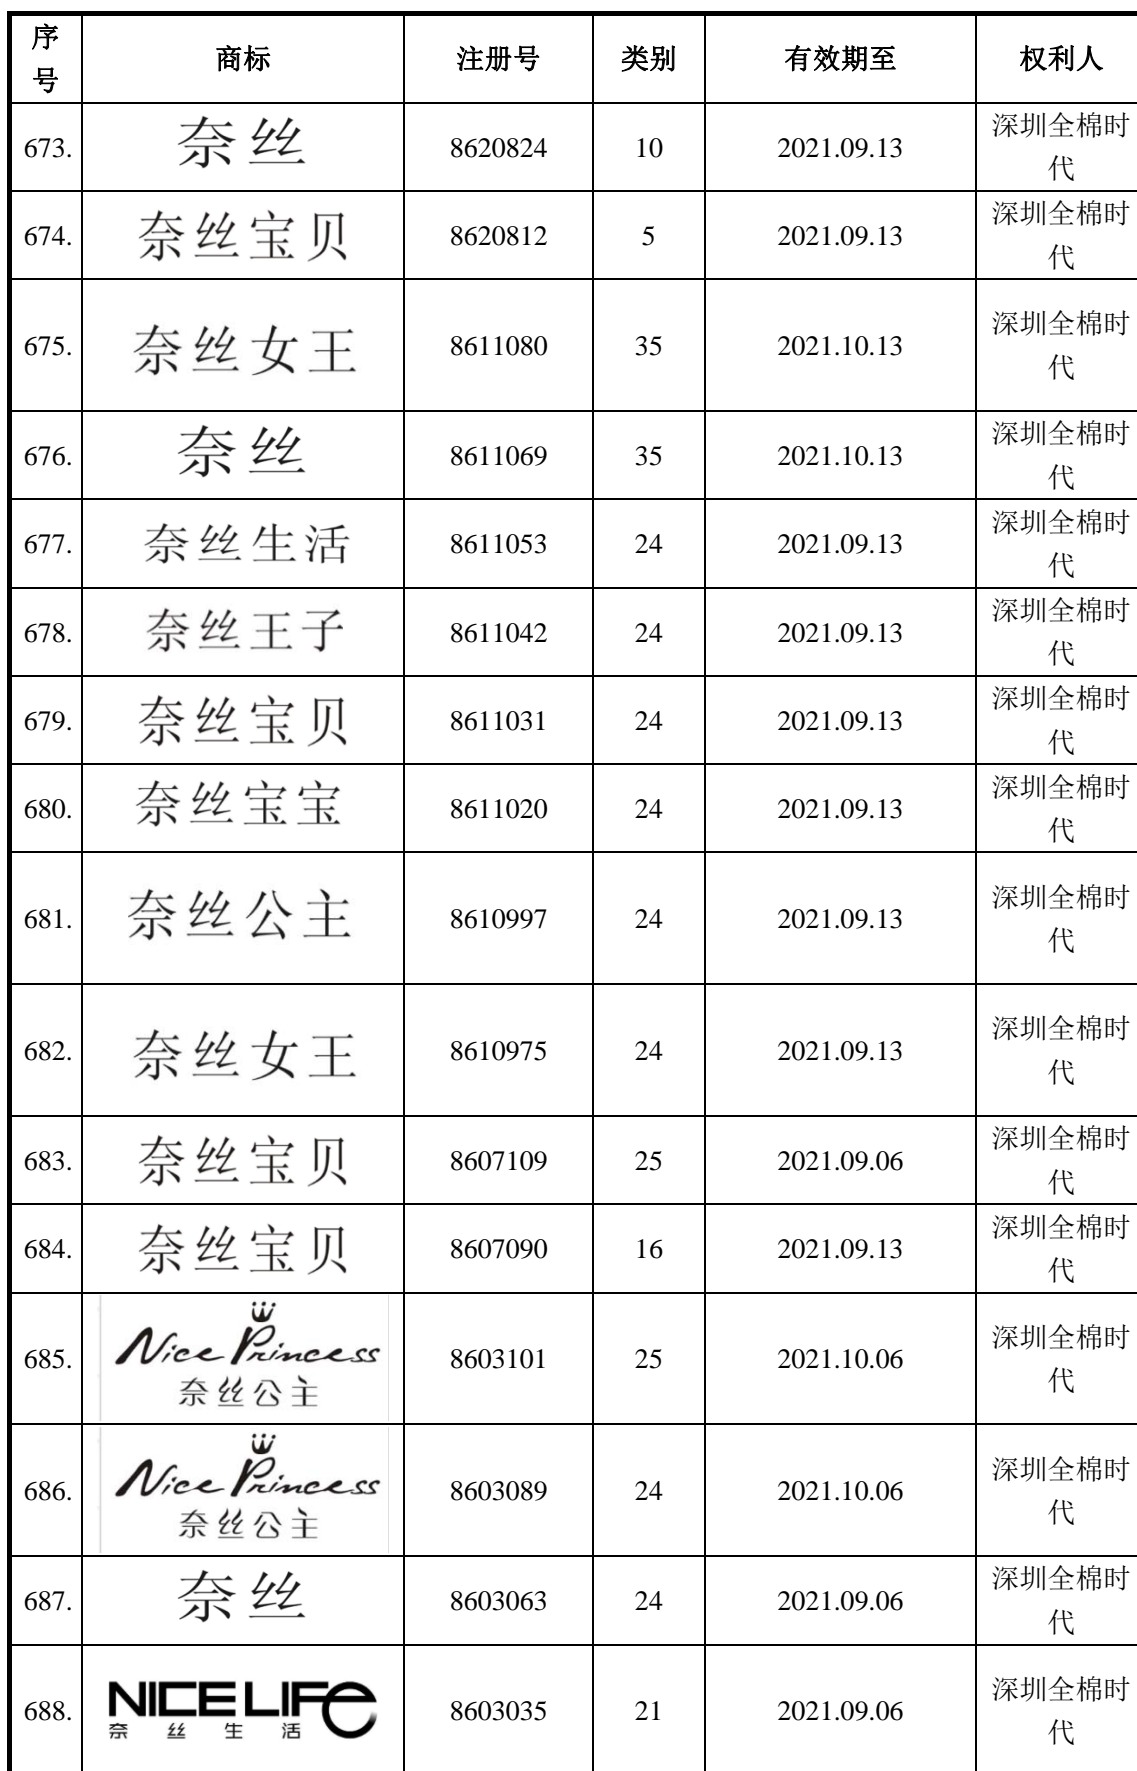 序号 商标 注册号 类别 有效期至 权利人
673. 奈丝 8620824 10 2021.09.13 深圳全棉时代
674. 奈丝宝贝 8620812 5 2021.09.13 深圳全棉时代
675. 奈丝女王 8611080 35 2021.10.13 深圳全棉时代
676. 奈丝 8611069 35 2021.10.13 深圳全棉时代
677. 奈丝生活 8611053 24 2021.09.13 深圳全棉时代
678. 奈丝王子 8611042 24 2021.09.13 深圳全棉时代
679. 奈丝宝贝 8611031 24 2021.09.13 深圳全棉时代
680. 奈丝宝宝 8611020 24 2021.09.13 深圳全棉时代
681. 奈丝公主 8610997 24 2021.09.13 深圳全棉时代
682. 奈丝女王 8610975 24 2021.09.13 深圳全棉时代
683. 奈丝宝贝 8607109 25 2021.09.06 深圳全棉时代
684. 奈丝宝贝 8607090 16 2021.09.13 深圳全棉时代
685. Nice Princess 奈丝公主 8603101 25 2021.10.06 深圳全棉时代
686. Nice Princess 奈丝公主 8603089 24 2021.10.06 深圳全棉时代
687. 奈丝 8603063 24 2021.09.06 深圳全棉时代
688. NICE LIFe 奈丝生活 8603035 21 2021.09.06 深圳全棉时代